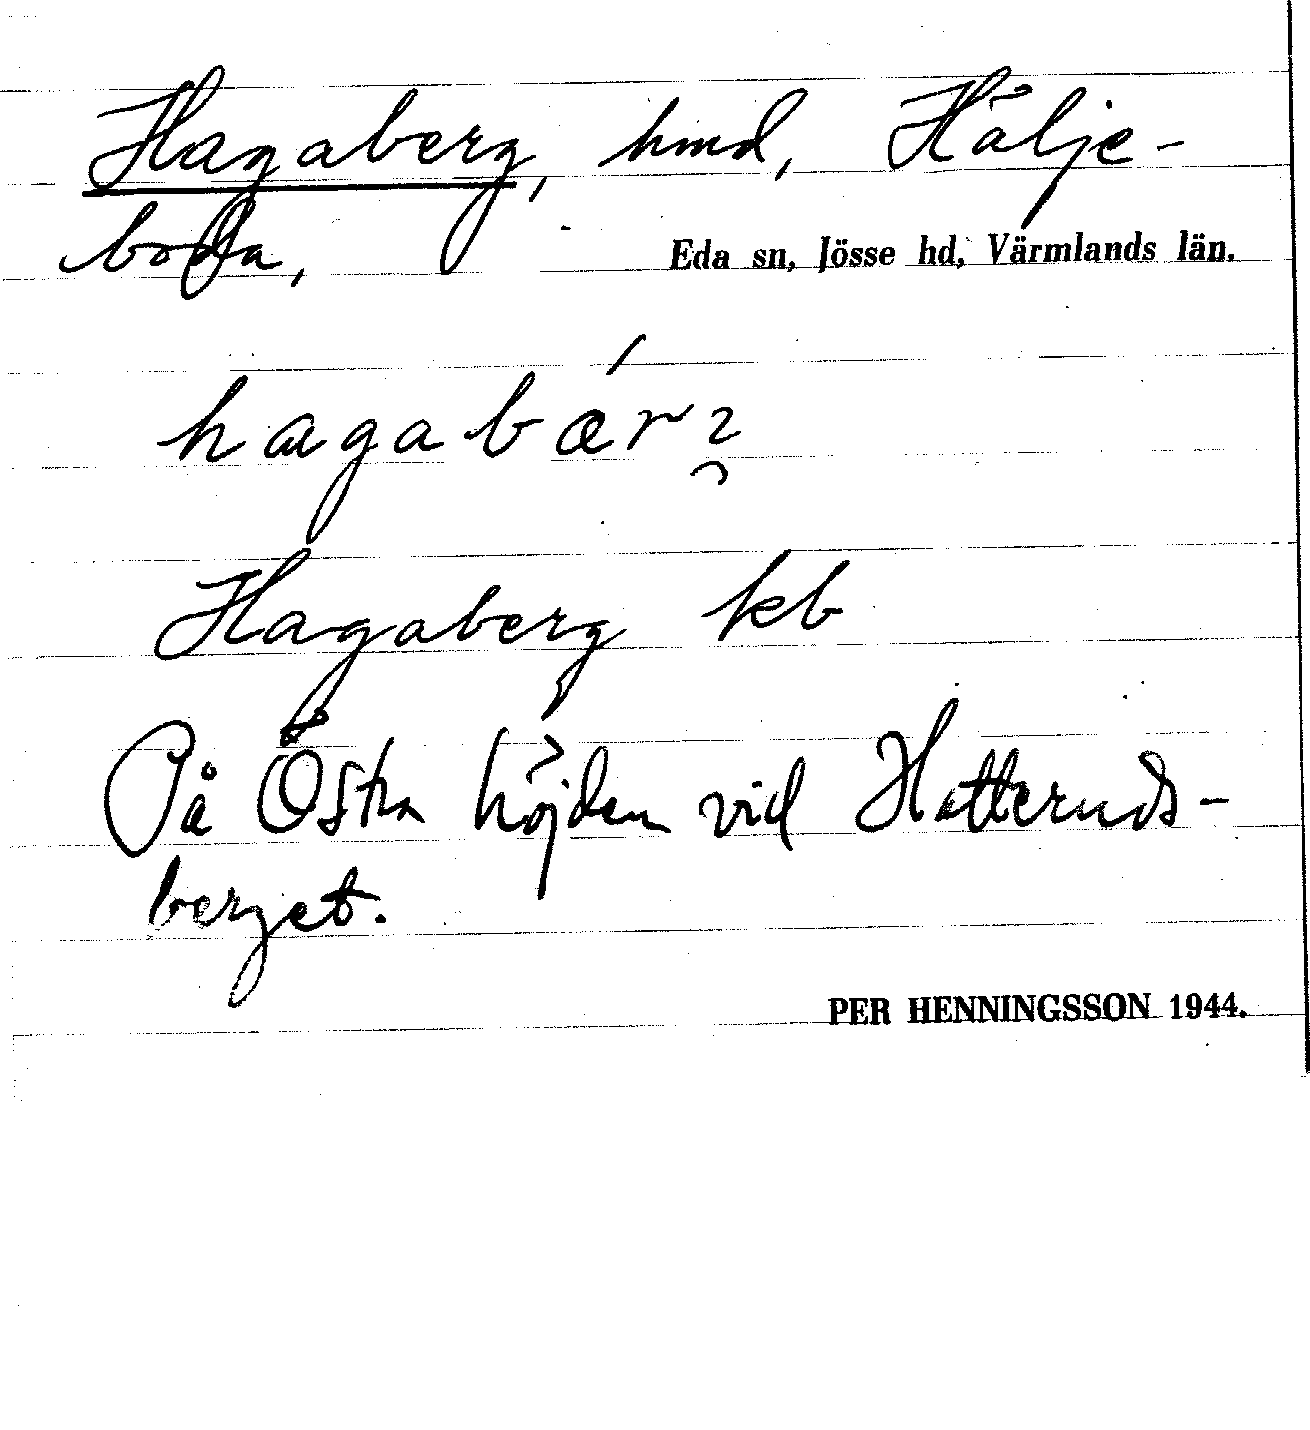 Hagaberg, hmd, Hälje-
boda,
Eda sn, Jösse hd, Värmlands län.
Hagaberg kb
På Östra höjden vid Hatteruds-
berget.
PER HENNINGSSON 1944.